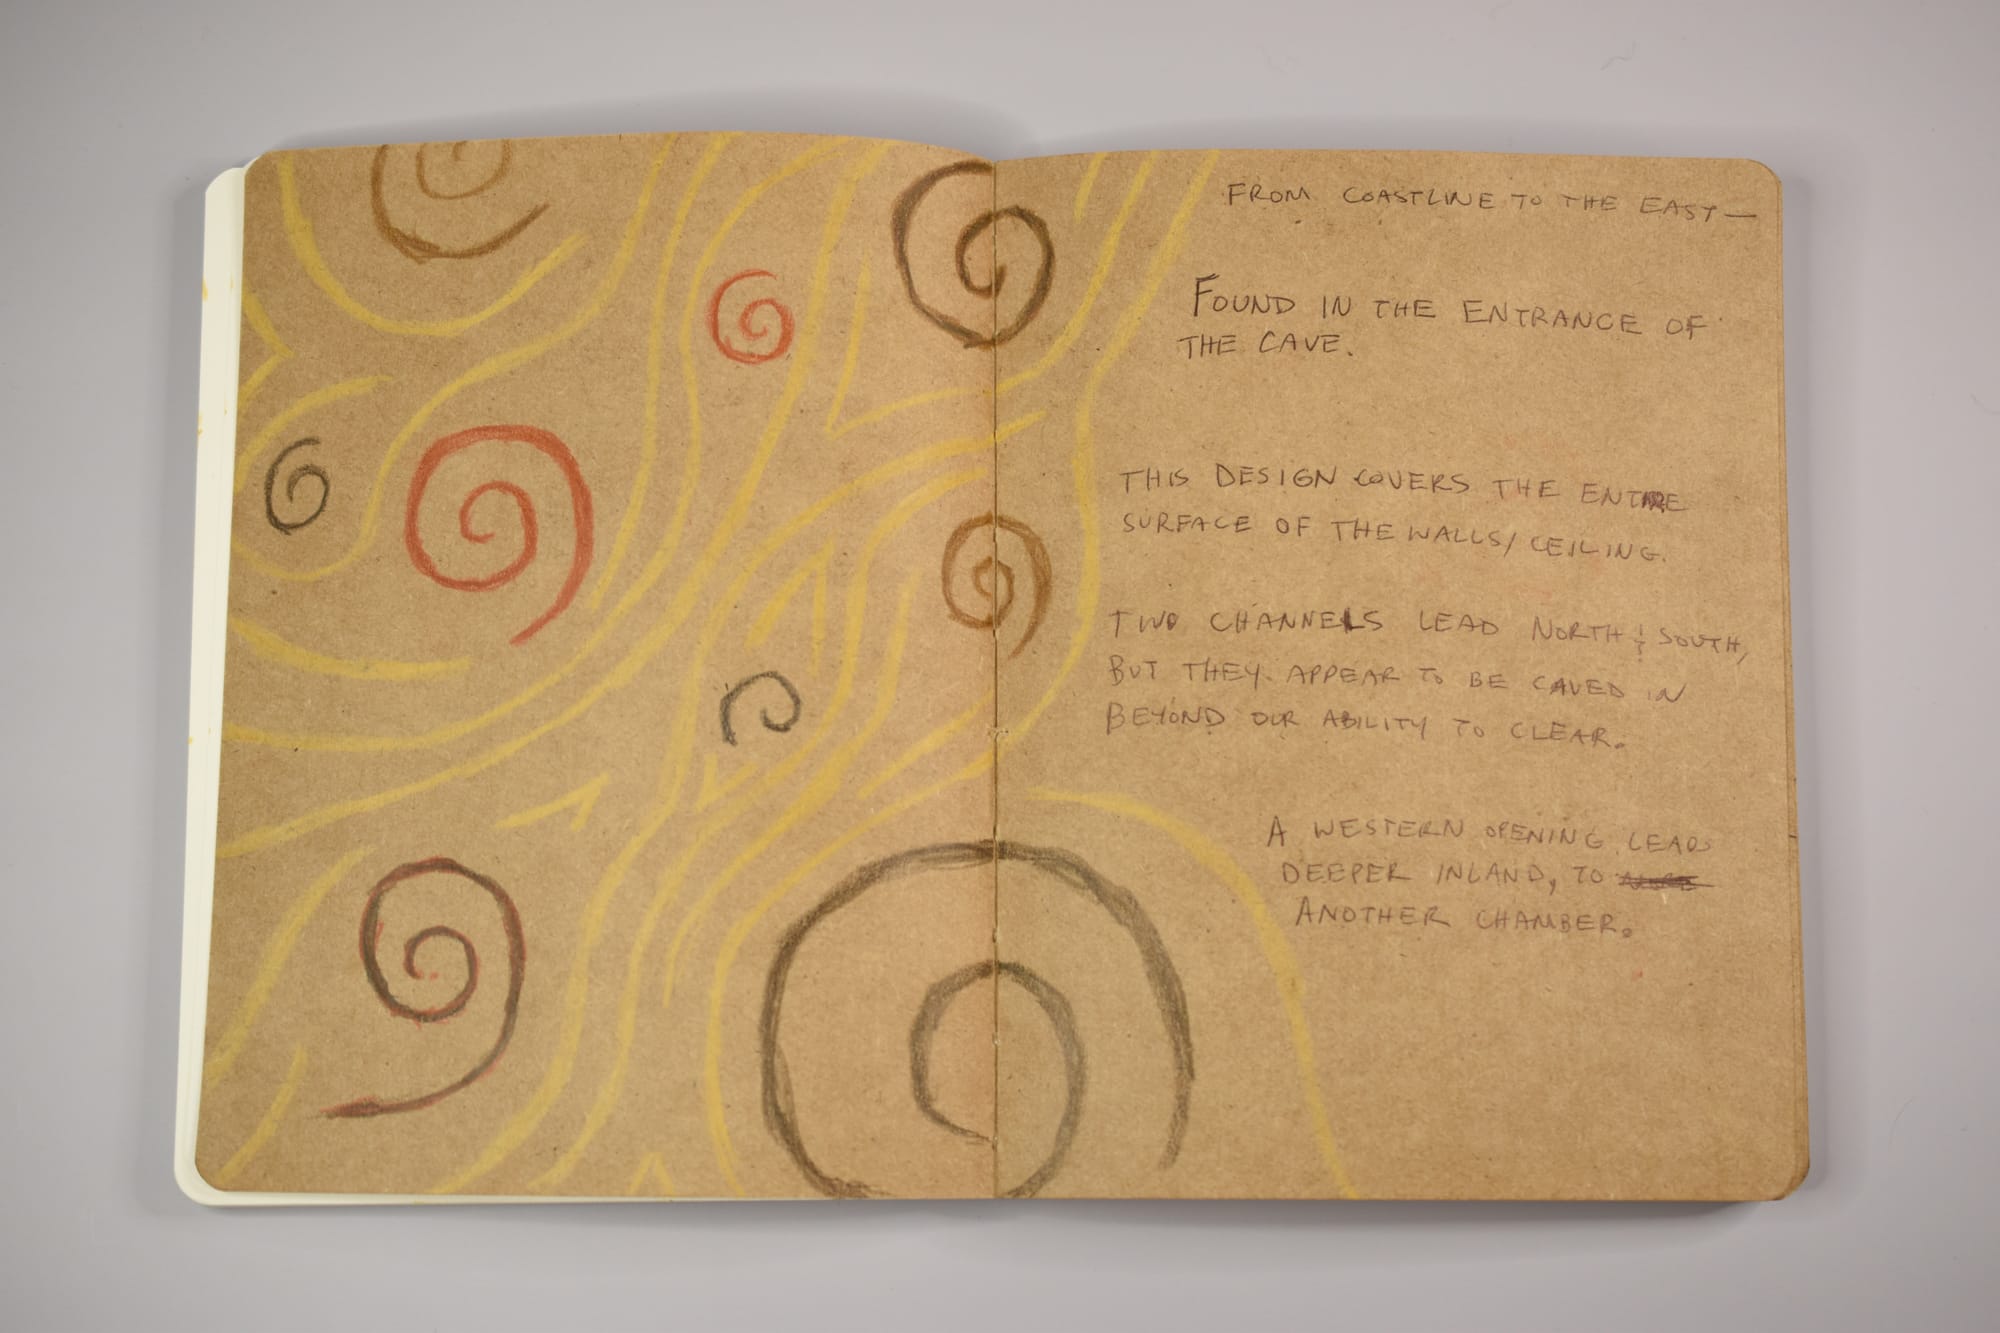 FROM COASTLINE TO THE EAST—
FOUND IN THE ENTRANCE OF
THE CAVE.
THIS DESIGN COVERS THE ENTIRE
SURFACE OF THE WALLS/CEILING.
TWO CHANNELS LEAD NORTH & SOUTH,
BUT THEY APPEAR TO BE CAVED IN
BEYOND OUR ABILITY TO CLEAR.
A WESTERN OPENING LEADS
DEEPER INLAND, TO
ANOTHER CHAMBER.